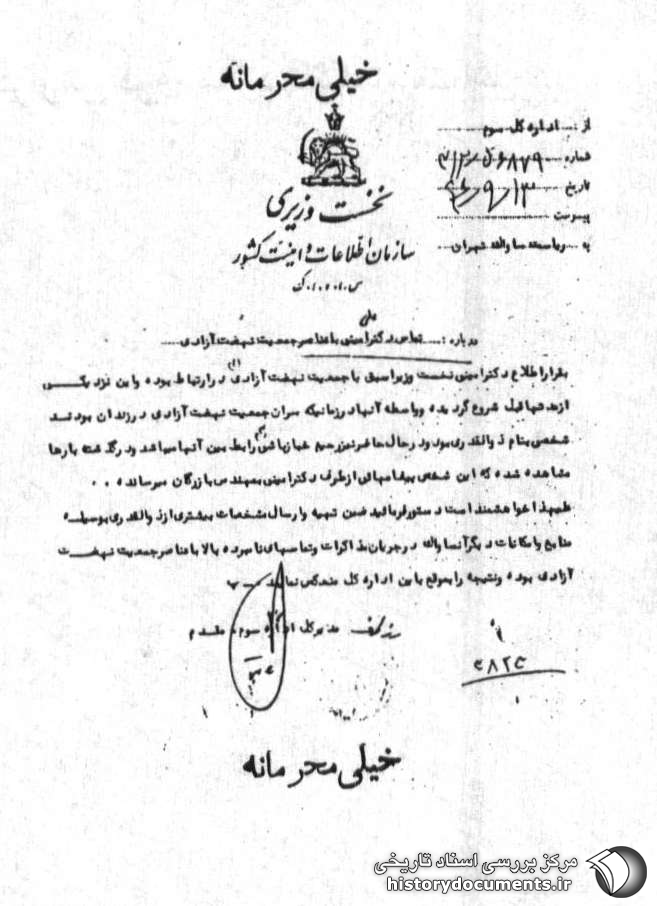 خیلی محرمانه
نخست وزیری
سازمان اطلاعات و امنیت کشور
س.ا.و.ا.ک
از : اداره کل سوم
شماره ۴۱۲/۵۶۸۷۹
تاریخ ۴۶/۹/۱۳
پیوست
به ریاست ساواک تهران
درباره : تماس دکتر امینی با عناصر جمعیت نهضت آزادی
بقرار اطلاع دکتر امینی نخست وزیر اسبق با جمعیت نهضت آزادی در ارتباط بوده و این نزدیکی
از مدتها قبل شروع گردیده و واسطه آنها در زمانیکه سران جمعیت نهضت آزادی در زندان بودند
شخصی بنام ذوالقدری بود و در حال حاضر نیز رحیم رابط بین آنها میباشد و در گذشته بارها
مشاهده شده که این شخص پیغامهائی از طرف دکتر امینی بمهندس بازرگان میرسانده ..
علیهذا خواهشمند است دستور فرمائید ضمن تهیه و ارسال مشخصات بیشتری از ذوالقدری بوسیله
منابع و امکانات دیگر آنساواک در جریان مذاکرات و تماسهای نامبرده بالا با عناصر جمعیت نهضت
آزادی بوده و نتیجه را بموقع باین اداره کل منعکس نمایند
مدیر کل اداره سوم . مقدم
خیلی محرمانه
مرکز بررسی اسناد تاریخی
historydocuments.ir